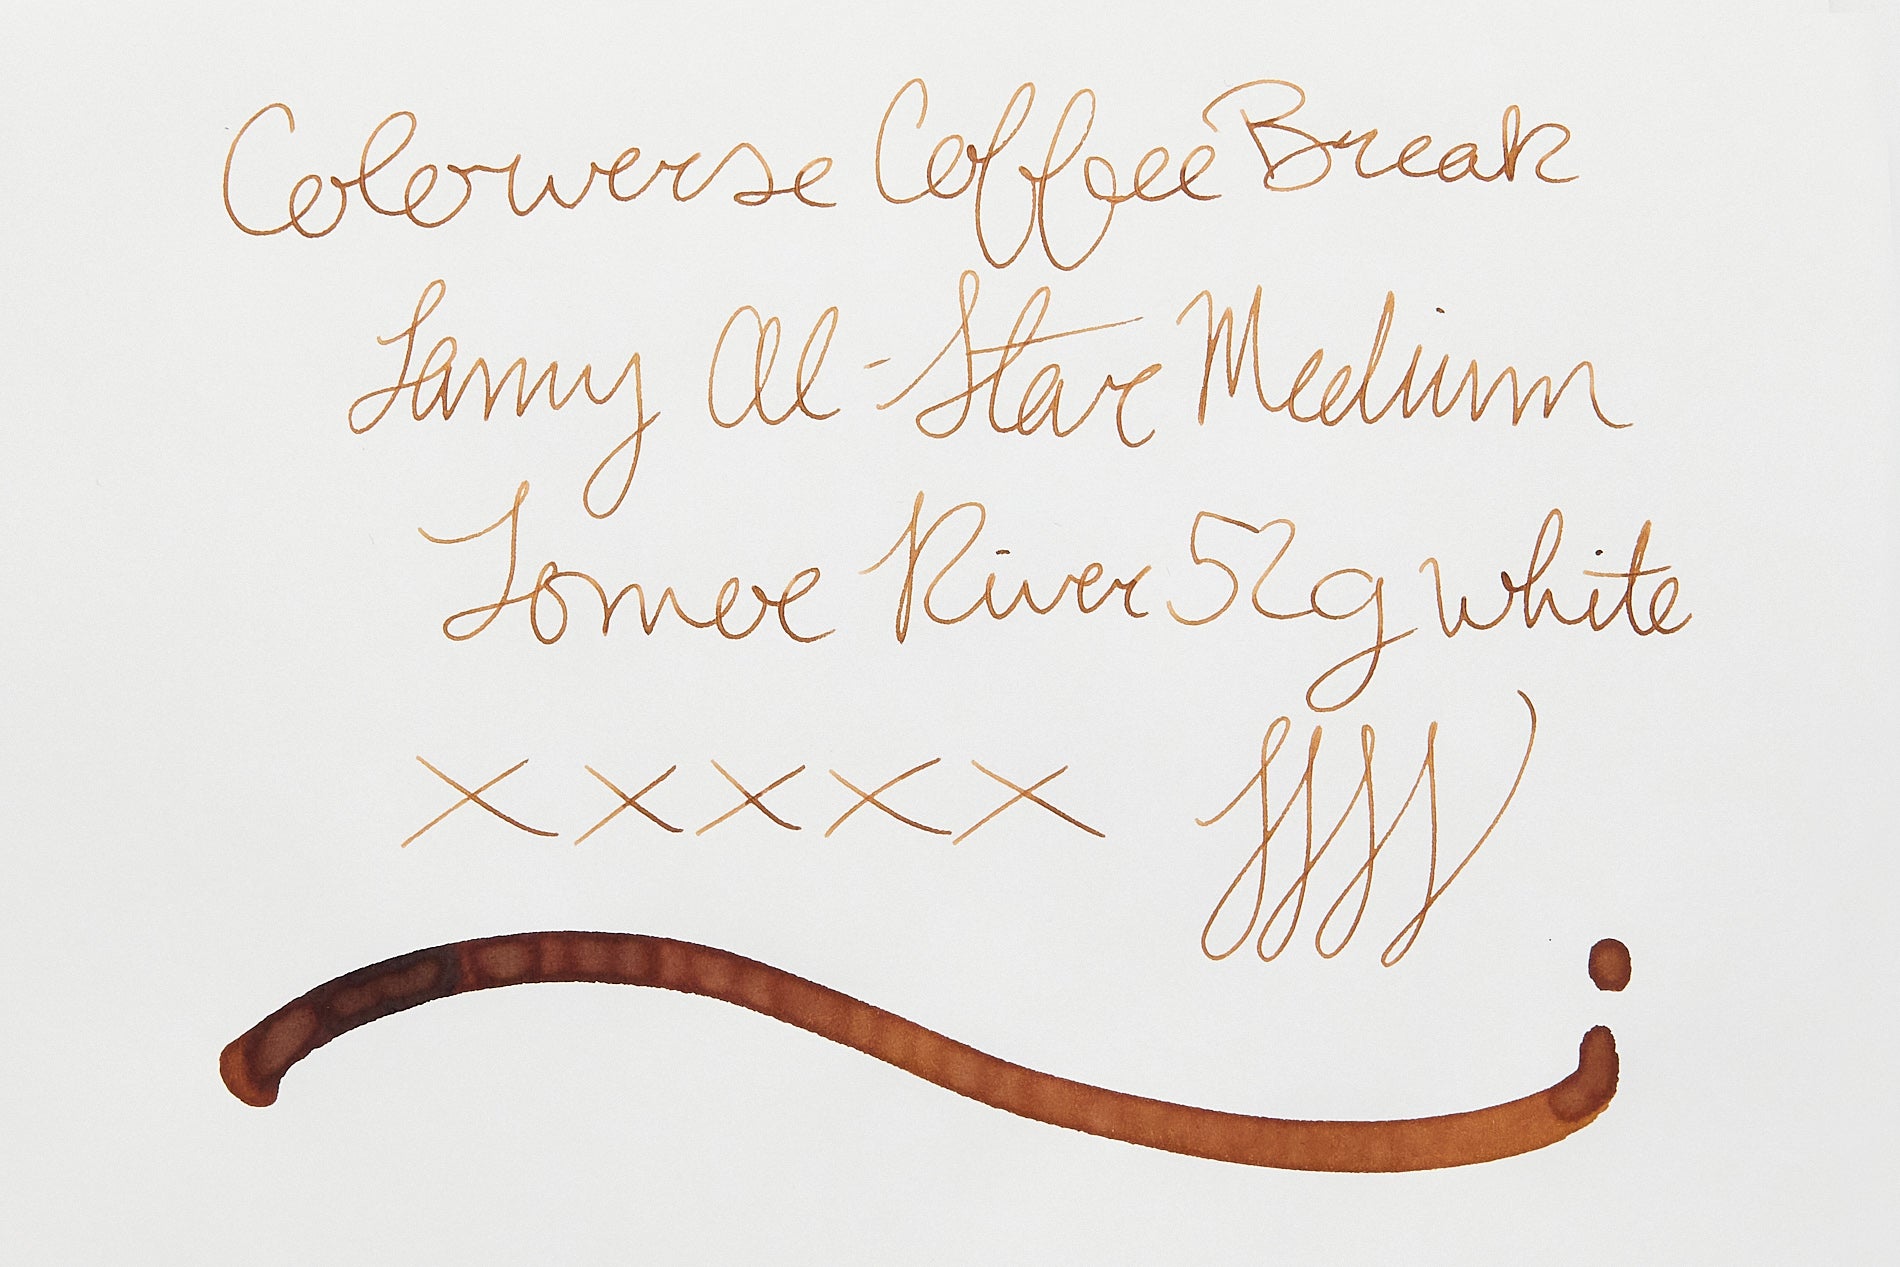 Colorverse Coffee Break
Lamy Al-Star Medium
Tomoe River 52g white
x x x x x